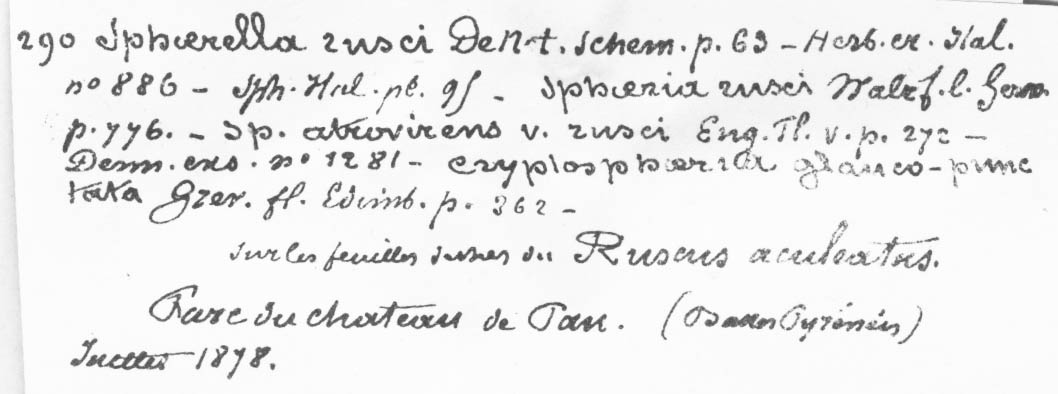 290 Sphærella rusci DeNt. schem. p. 63 - Herb. cr. Ital.
no 886 - Sph. Ital. pl. 95 - Sphæria rusci Walr f. l. Germ.
p. 776. - Sp. atrovirens v. rusci Eng. Fl. v. p. 272 -
Desm. exs. no 1281 - Cryptosphæria glauco-punc
tata Grev. fl. Edimb. p. 362 -
sur les feuilles du Ruscus aculeatus.
Parc du chateau de Pau. (Basses Pyrénées)
Juillet 1878.